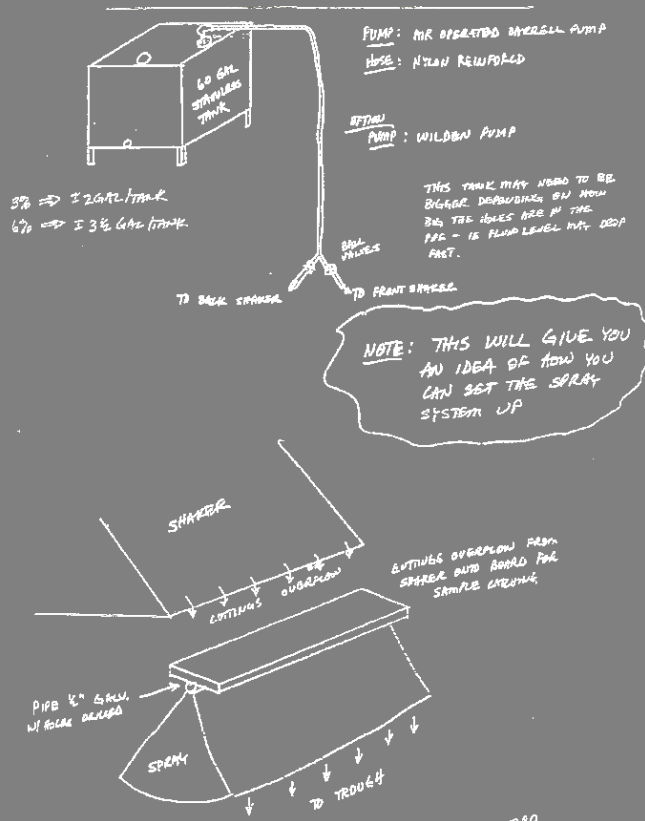 PUMP: AIR OPERATED BARRELL PUMP
HOSE: NYLON REINFORCD
60 GAL
STAINLESS
TANK
OPTION
PUMP: WILDEN PUMP
3% ⇒ ± 2 GAL/TANK
6% ⇒ ± 3½ GAL/TANK
THIS TANK MAY NEED TO BE
BIGGER DEPENDING ON HOW
BIG THE HOLES ARE IN THE
PIPE - IE FLUID LEVEL MAY DROP
FAST.
BALL
VALVES
TO BACK SHAKER
TO FRONT SHAKER
NOTE: THIS WILL GIVE YOU
AN IDEA OF HOW YOU
CAN SET THE SPRAY
SYSTEM UP
SHAKER
CUTTINGS OVERFLOW
CUTTINGS OVERFLOW FROM
SHAKER ONTO BOARD FOR
SAMPLE CATCHING
PIPE ½" GALV.
W/ HOLES DRILLED
SPRAY
TO TROUGH